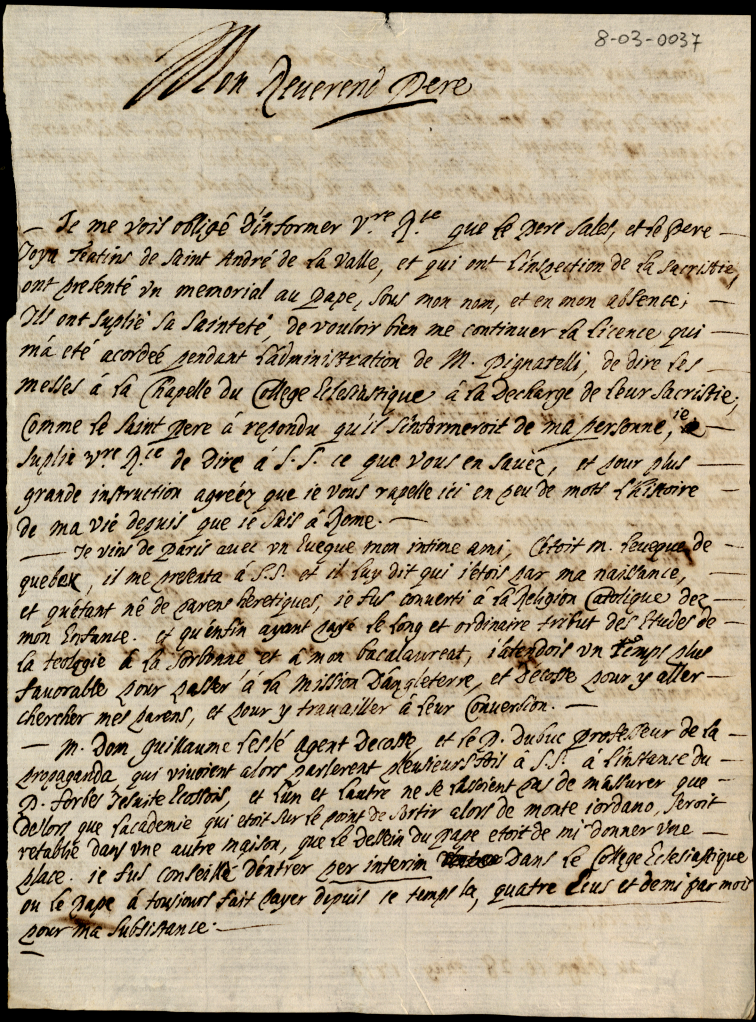 8-03-0037
Mon Reverend Pere
Je me vois obligé d'informer V.re R.ce que le Pere Sales, et le Pere
Joya Teatins de Saint André de la Valle, et qui ont l'inspection de la Sacristie,
ont presenté un memorial au Pape, sous mon nom, et en mon absence;
Ils ont suplié sa Sainteté de vouloir bien me continuer la licence qui
m'a été acordeé pendant l'administration de M. Pignatelli, de dire les
messes à la Chapelle du College Eclesiastique à la Decharge de leur Sacristie;
Comme le Saint Pere à repondu qu'il s'informeroit de ma personne, ie
suplie v.re R.ce de Dire à S.S. ce que vous en savez, et pour plus
grande instruction agreéz que ie vous rapelle ici en peu de mots l'histoire
de ma vie depuis que ie suis à Rome.
Je vins de Paris avec un Eveque mon intime ami, C'étoit m. l'eveque de
quebek, il me presenta à S.S. et il luy dit qui i'étois par ma naissance,
et qu'etant né de parens heretiques, ie fus converti à la Religion Catolique dez
mon Enfance. et qu'enfin ayant payé le long et ordinaire tribut des Etudes de
la teologie à la Sorbonne et à mon bacalaureat, i'atendois un temps plus
favorable pour passer à la Mission D'angleterre, et D'ecosse pour y aller
chercher mes parens, et pour y travailler à leur Conversion.
M. Dom Guillaume Leslé Agent Decosse, et le P. Dubuc professeur de la
propaganda qui vivoient alors parlerent plusieurs fois à S.S. à l'instance du
P. Forbes Jesuite Ecossois, et l'un et l'autre ne se lassoient pas de m'assurer que
de'lors que l'academie qui etoit sur le point de sortir alors de monte iordano, seroit
retablie dans une autre maison, que le dessein du Pape etoit de mi donner une
place. ie fus conseillé d'entrer per interim Dans le College Eclesiastique
ou le Pape à tousiours fait payer depuis ce temps la, quatre Ecus et demi par mois
pour ma subsistance.